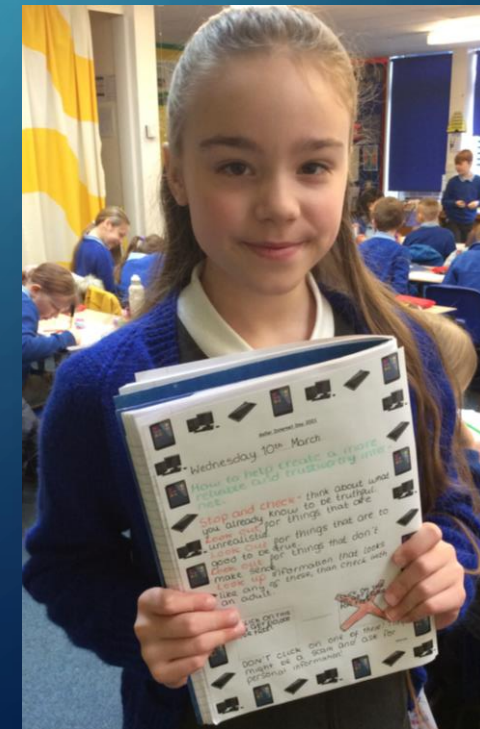 Safer Internet Day 2021
Wednesday 10th March
How to help create a more
reliable and trustworthy inter-
net.
Stop and check- think about what
you already know to be truthful.
Look out for things that are
unrealistic.
Look Out for things that are to
good to be true.
Look out for things that don't
make sense.
Look up information that looks
like any of these, than check with
an adult.
DON'T click on one of these
might be a scam and ask for
personal information!